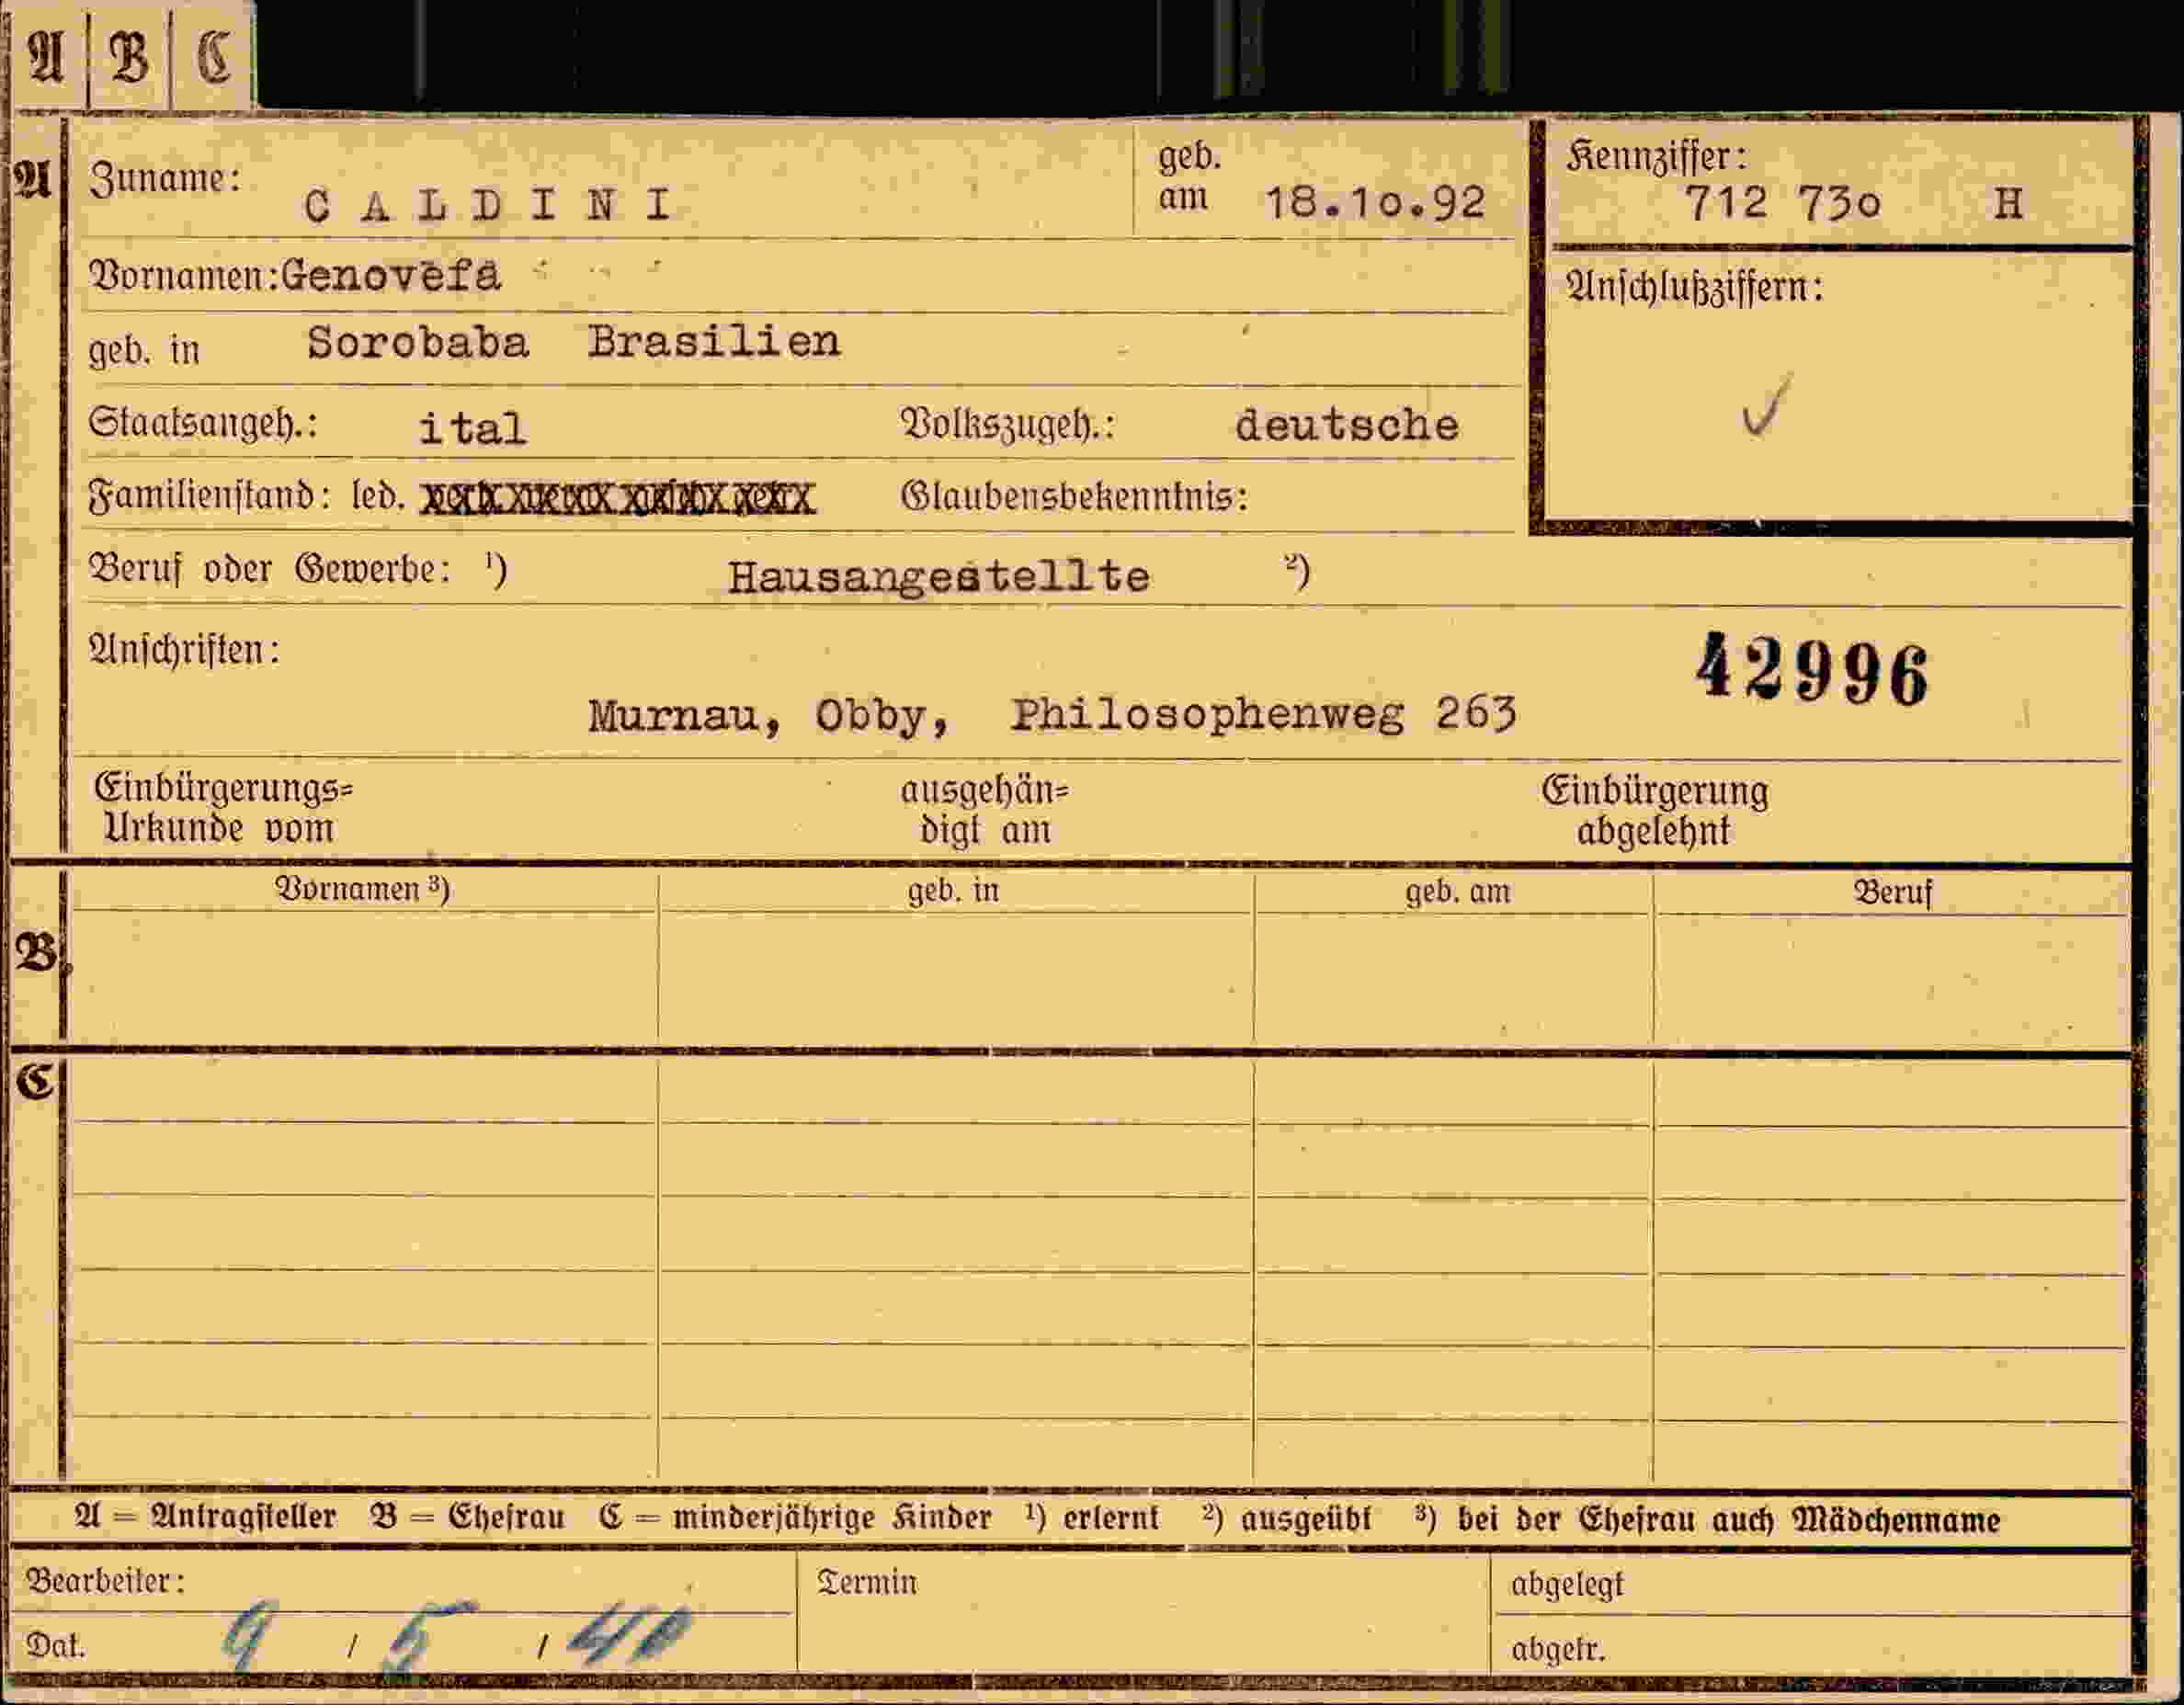 A B C
A Zuname: CALDINI geb. am 18.10.92 Kennziffer: 712 730 H
Vornamen: Genovefa
Anschlußziffern:
geb. in Sorobaba Brasilien
Staatsangeh.: ital Volkszugeh.: deutsche
Familienstand: led. Glaubensbekenntnis:
Beruf oder Gewerbe: ¹) Hausangestellte ²)
Anschriften: 42996
Murnau, Obby, Philosophenweg 263
Einbürgerungs= ausgehän= Einbürgerung
Urkunde vom digt am abgelehnt
Vornamen ³) geb. in geb. am Beruf
B
C
A = Antragsteller B = Ehefrau C = minderjährige Kinder ¹) erlernt ²) ausgeübt ³) bei der Ehefrau auch Mädchenname
Bearbeiter: Termin abgelegt
Dat. 9 / 5 / 40 abgetr.